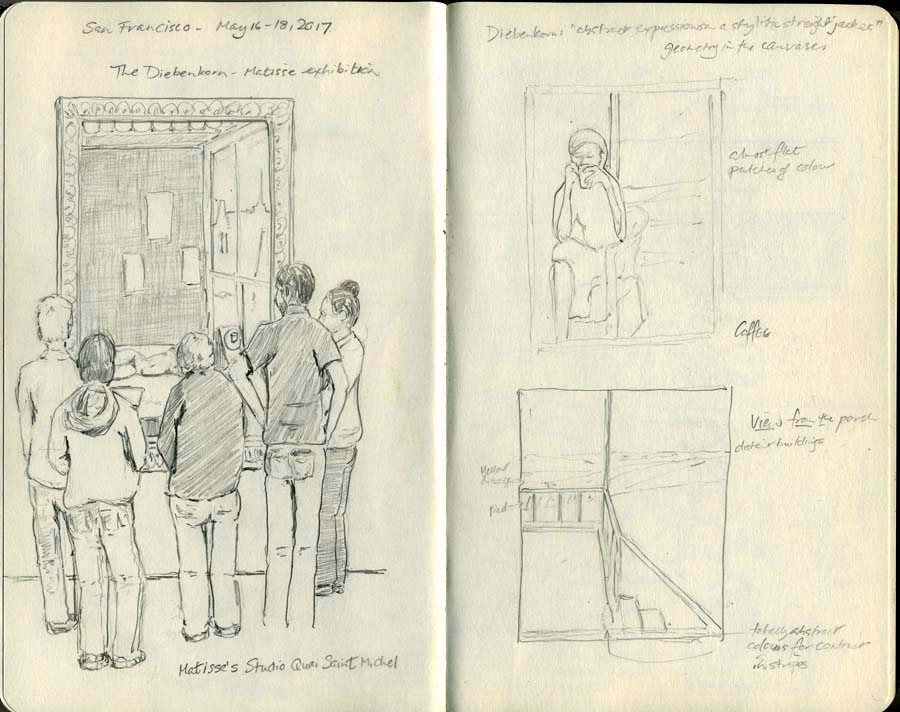 San Francisco - May 16-18, 2017
The Diebenkorn - Matisse exhibition
Matisse's Studio Quai Saint Michel
Diebenkorn: "abstract expression a stylistic straight jacket"
geometry in the canvases
almost flat
patches of colour
Coffee
View from the porch
distant buildings
Yellow
Red
totally abstract
colours for contrast
in stripes